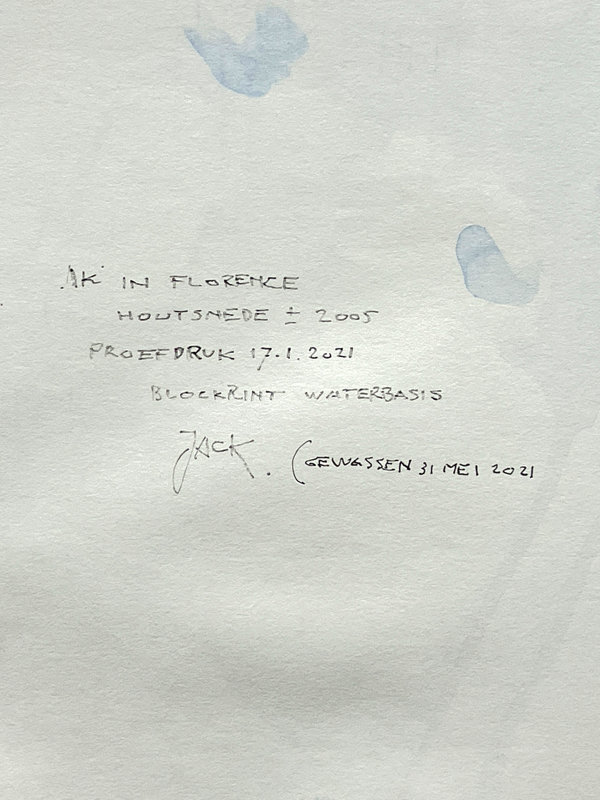 AK IN FLORENCE
HOUTSNEDE ± 2005
PROEFDRUK 17.1.2021
BLOCKRINT WATERBASIS
JACK. (GEWASSEN 31 MEI 2021